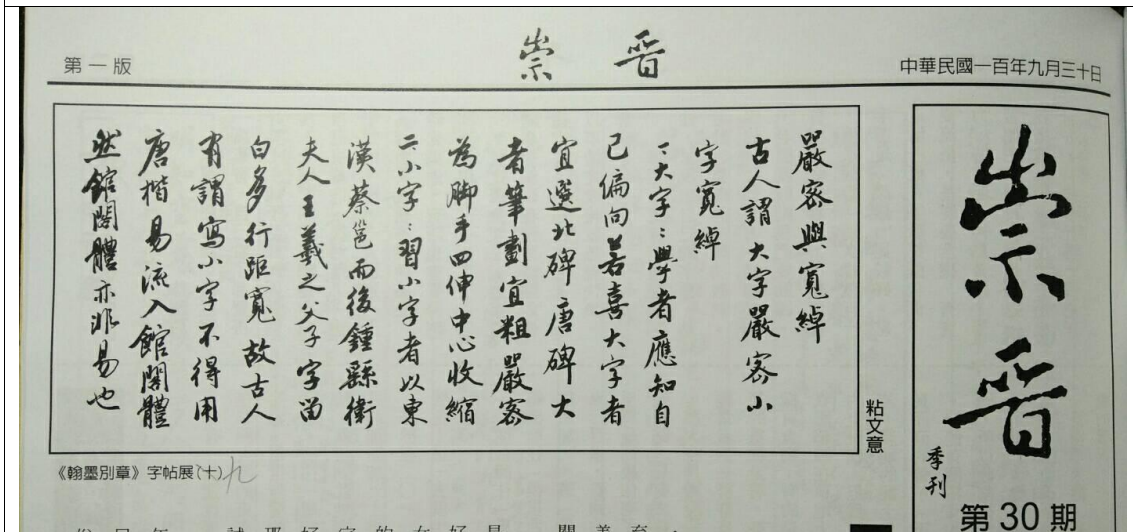 第一版
崇晉
中華民國一百年九月三十日
崇晉
季刊
第30期
嚴密與寬綽
古人謂大字嚴密小
字寬綽
一大字：學者應知自
己偏向若喜大字者
宜選北碑唐碑大
者筆劃宜粗嚴密
為腳手四伸中心收縮
二小字：習小字者以東
漢蔡邕而後鍾繇衛
夫人王羲之父子字留
白多行距寬故古人
有謂寫小字不得用
唐楷易流入館閣體
然館閣體亦非易也
粘文意
《翰墨別章》字帖展(十)九